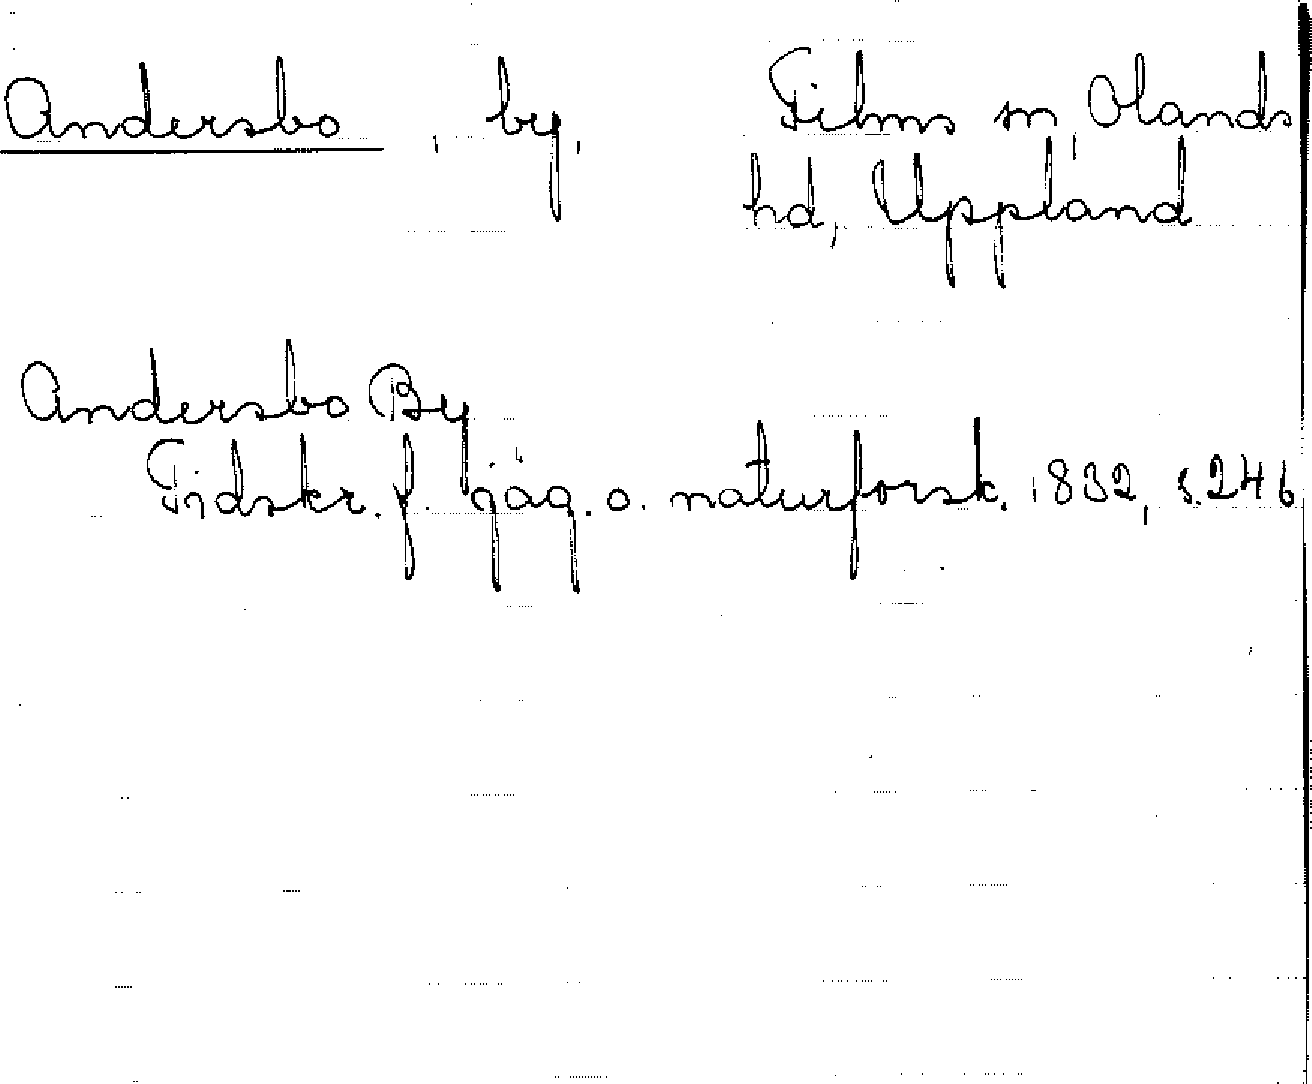 Andersbo, by, Films sn, Olands
hd, Uppland
Andersbo By
Tidskr. f. jäg. o. naturforsk. 1832, s. 246